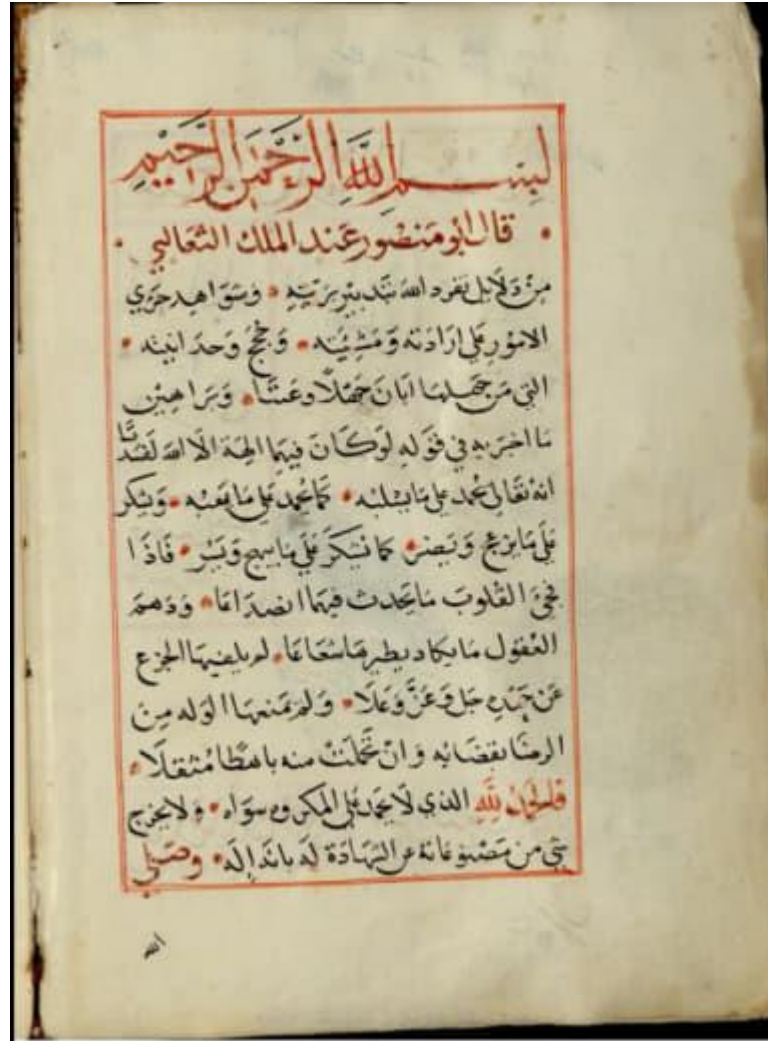 بسم الله الرحمن الرحيم
قال ابو منصور عبد الملك الثعالبي
من دلايل تفرد الله بتدبير بريته وشواهد جري
الامور على ارادته ومشيئته وحجج وحدانيته
التي من جهلها ابان جهلا وعتا وبراهين
ما اخبر به في قوله لوكان فيهما الهة الا الله لفسدتا
انه تعالى يحمد على ما يسلبه كما يحمد على ما يهبه ويشكر
على ما يزعج ويضر كما يشكر على ما يبهج ويسر فاذا
فجئ القلوب ما يحدث فيها انصداعا ودهم
العقول ما يكاد يطير بها شعاعا لم يلفها الجزع
عن حمده جل وعز وعلا ولم يمنعها الوله من
الرضا بقضائه وان تحملت منه باهظا مثقلا
فالحمد لله الذي لا يحمد على المكروه سواه ولا يخرج
شي من مصنوعاته عن الشهادة له بانه اله وصلى
الله